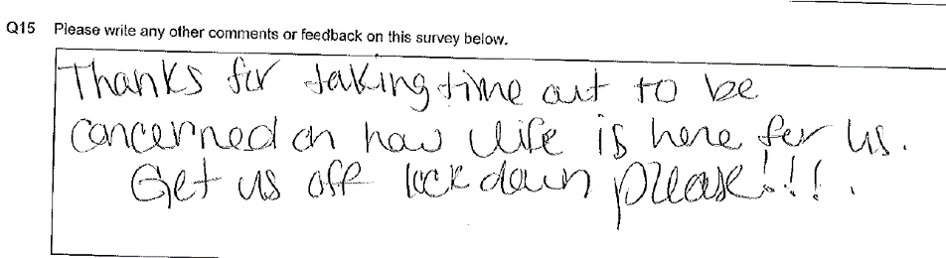 Q15 Please write any other comments or feedback on this survey below.
Thanks for taking time out to be
concerned on how life is here for us.
Get us off lock down please!!!.